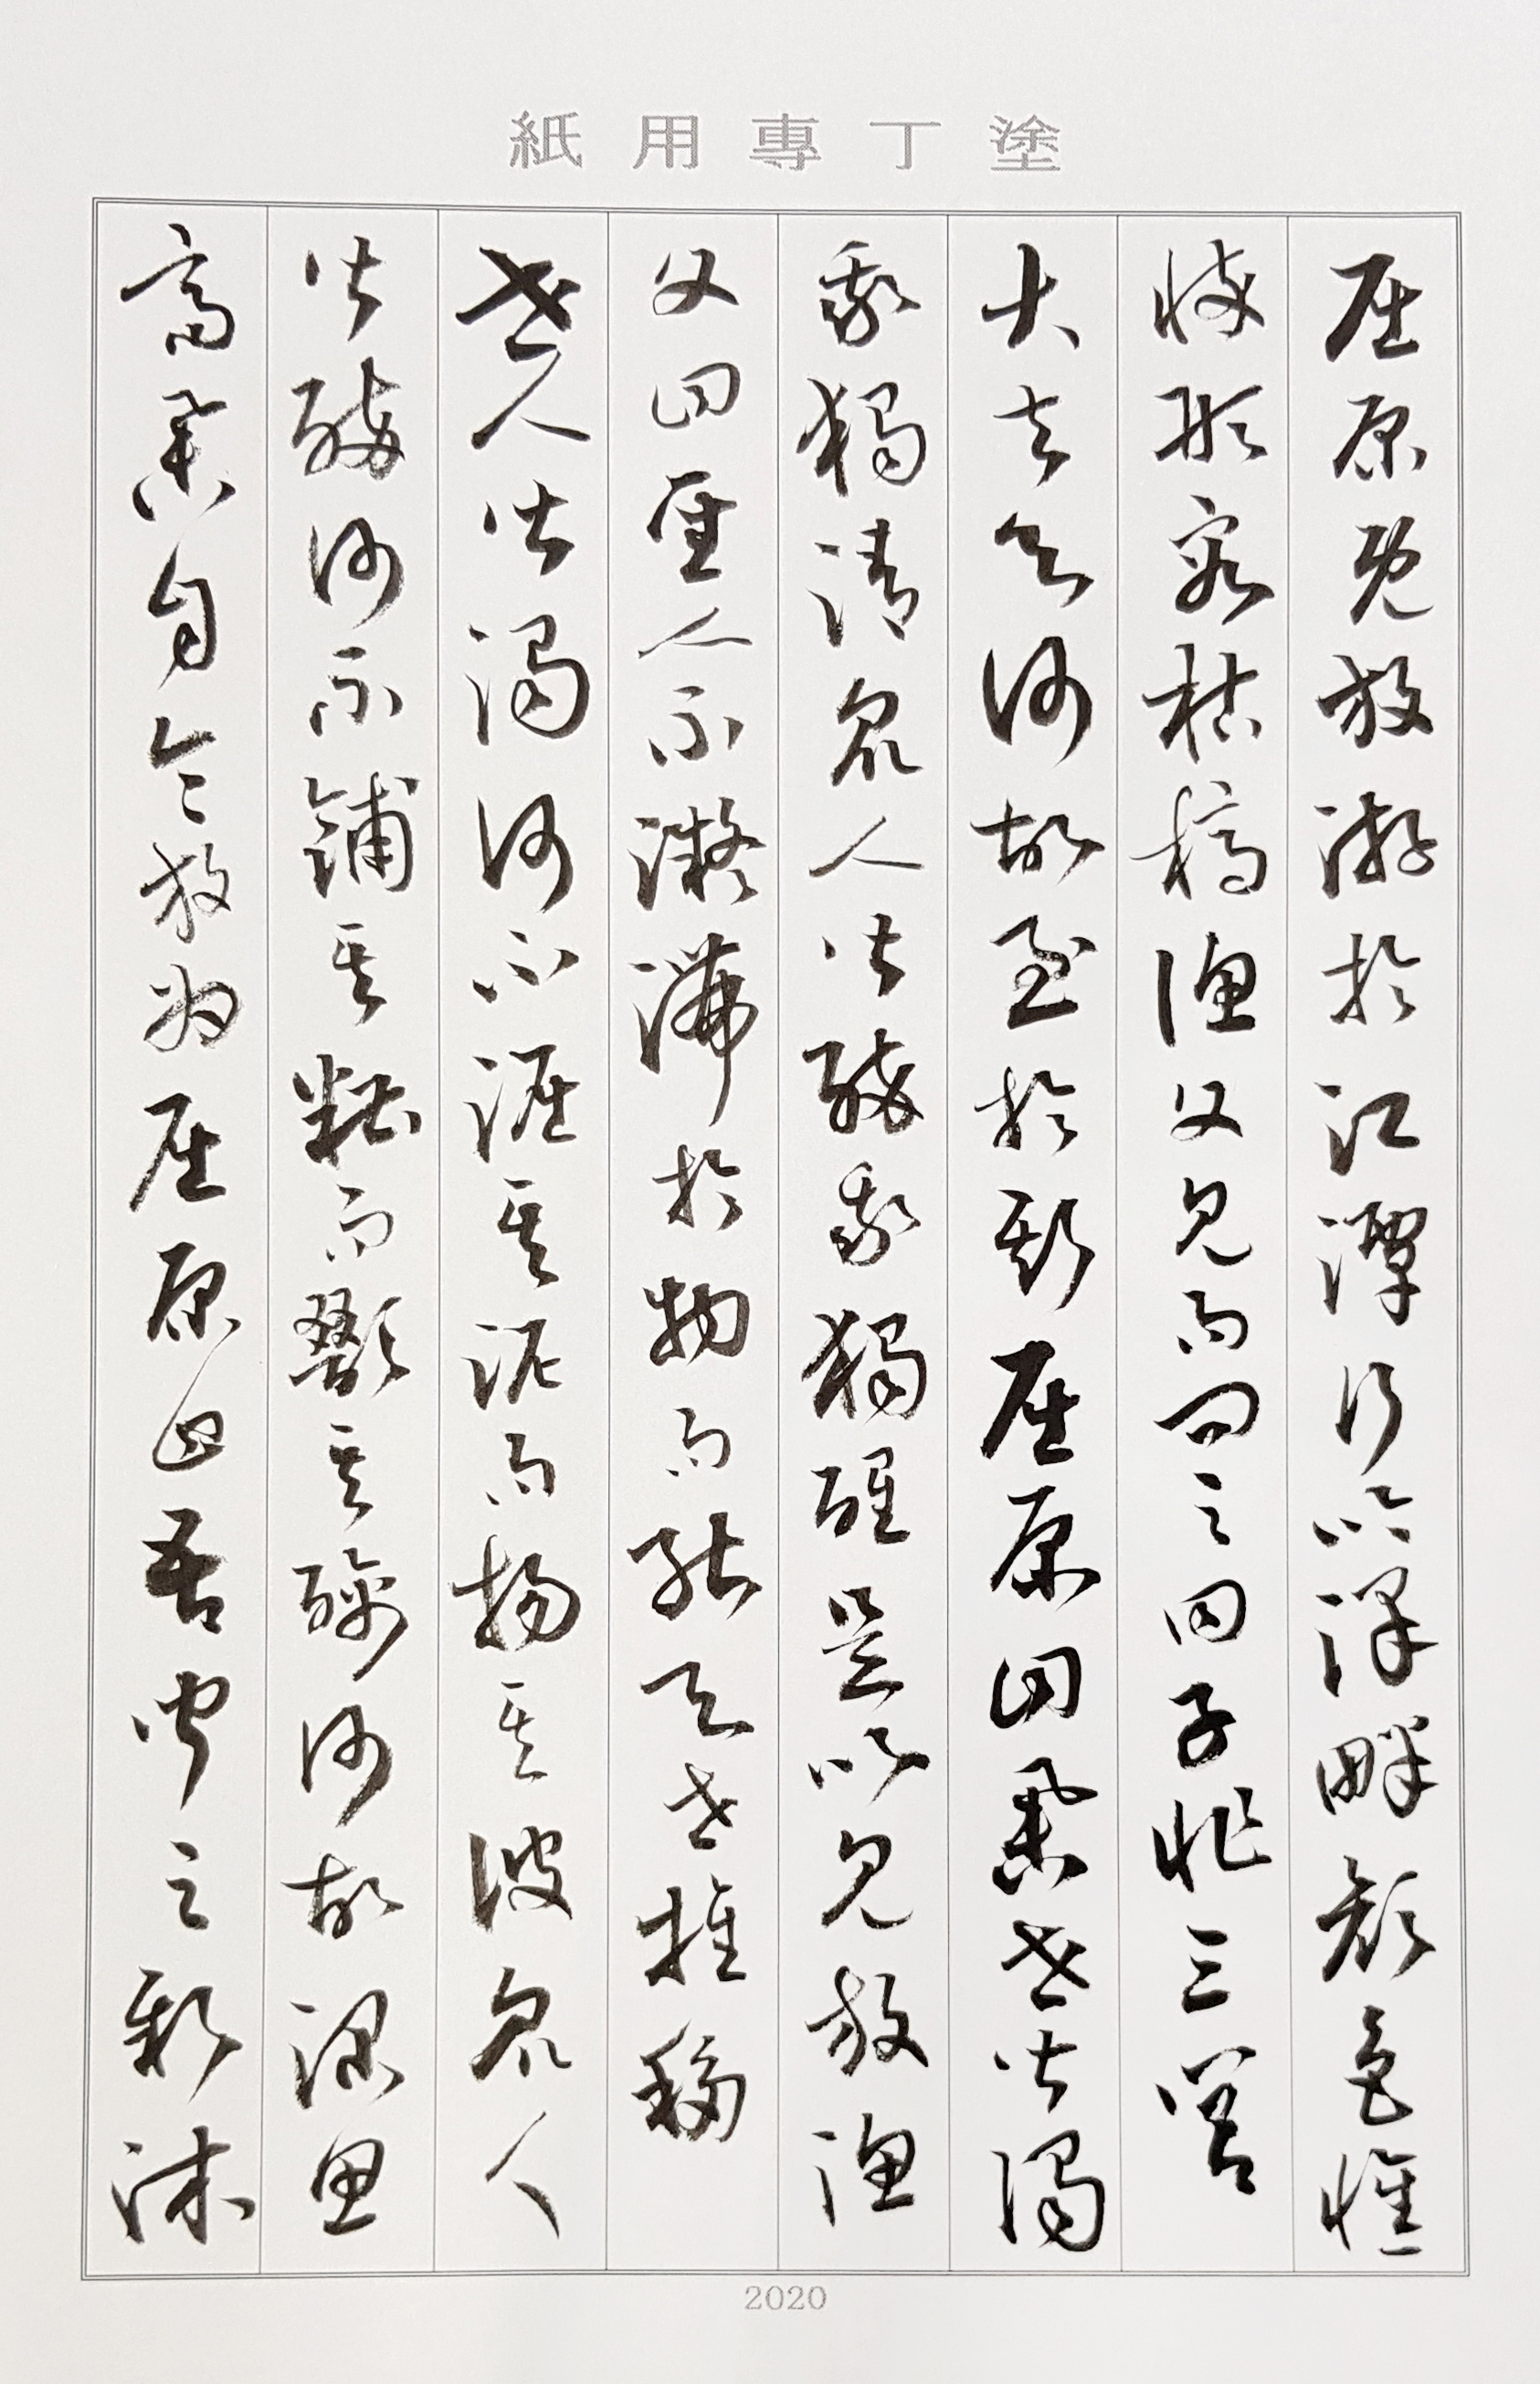 塗丁專用紙
屈原既放游於江潭行吟澤畔顏色憔
悴形容枯槁漁父見而問之曰子非三閭
大夫與何故至於斯屈原曰舉世皆濁
我獨清眾人皆醉我獨醒是以見放漁
父曰聖人不凝滯於物而能與世推移
世人皆濁何不淈其泥而揚其波眾人
皆醉何不餔其糟而歠其醨何故深思
高舉自令放為屈原曰吾聞之新沐
2020